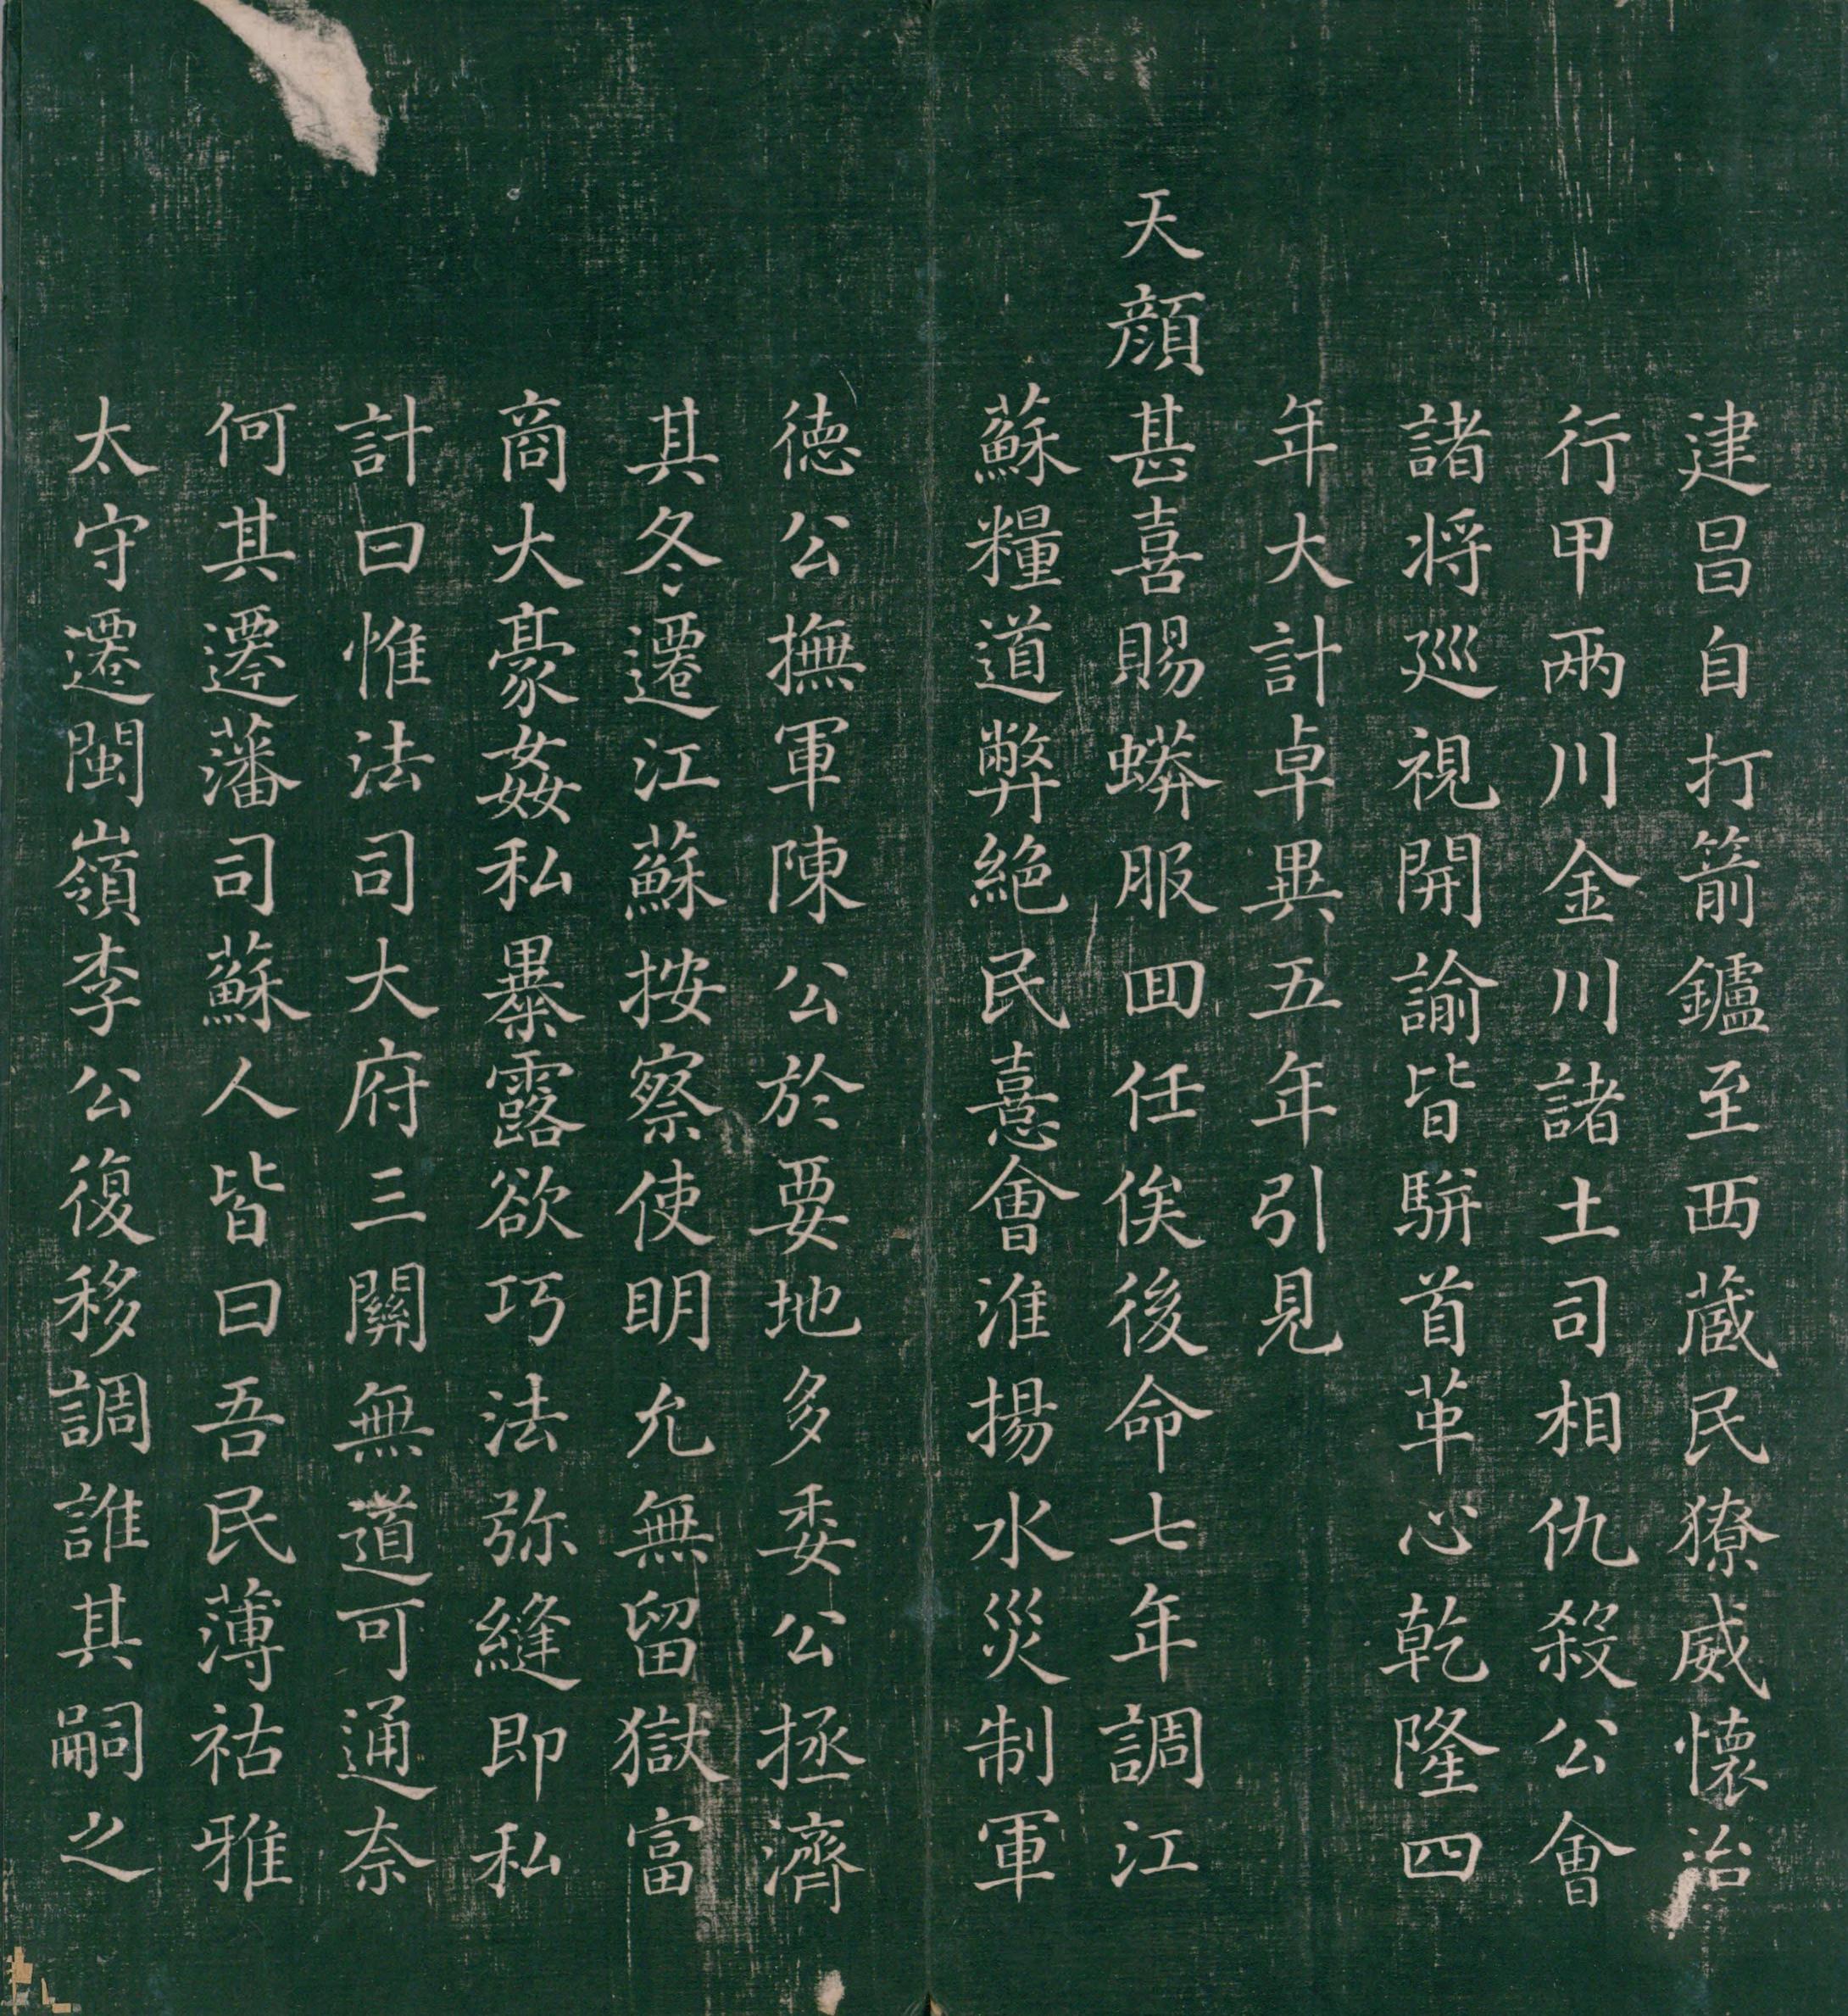 建昌自打箭鑪至西蔵民獠威懷洽
行甲兩川金川諸土司相仇殺公會
諸将廵視開諭皆駢首革心乾隆四
年大計卓異五年引見
天顔甚喜賜蟒服囬任俟後命七年調江
蘇糧道弊絶民憙會淮揚水災制軍
徳公撫軍陳公於要地多委公拯濟
其冬遷江蘇按察使明允無留獄富
商大豪姦私暴露欲巧法弥縫即私
計曰惟法司大府三關無道可通奈
何其遷藩司蘇人皆曰吾民薄祜雅
太守遷閩嶺李公復移調誰其嗣之